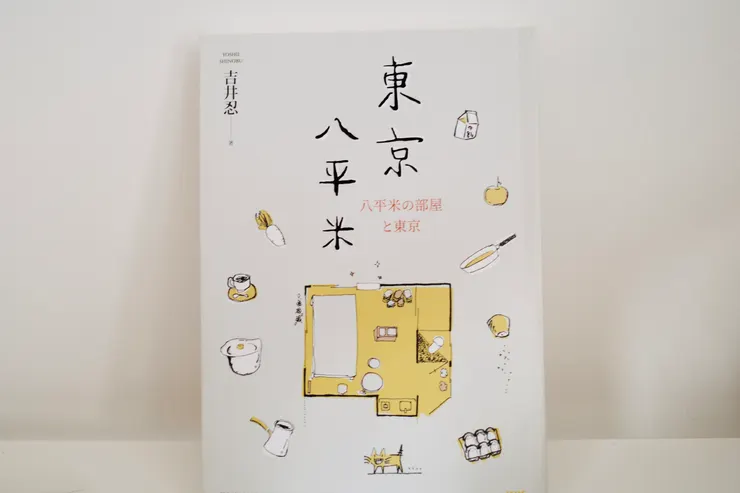 YOSHII
SHINOBU
吉井忍
著
東京
八平米
八平米の部屋
と東京